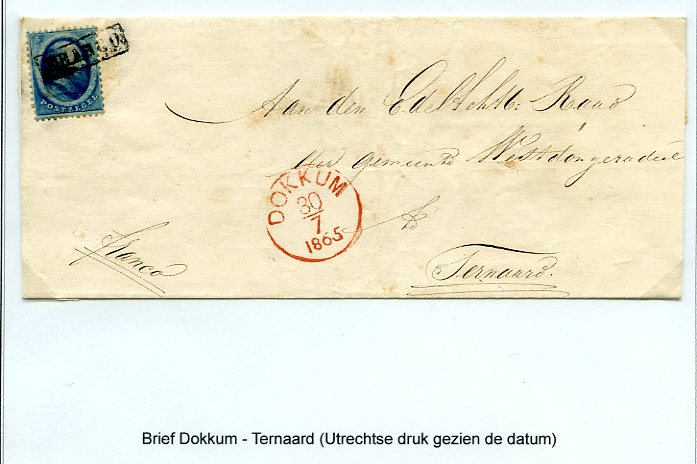 5
FRANCO
POSTZEGEL
Aan den EdelAchtb: Raad
der gemeente Westdongeradeel
DOKKUM
30
7
1865
Franco
Ternaard.
Brief Dokkum - Ternaard (Utrechtse druk gezien de datum)